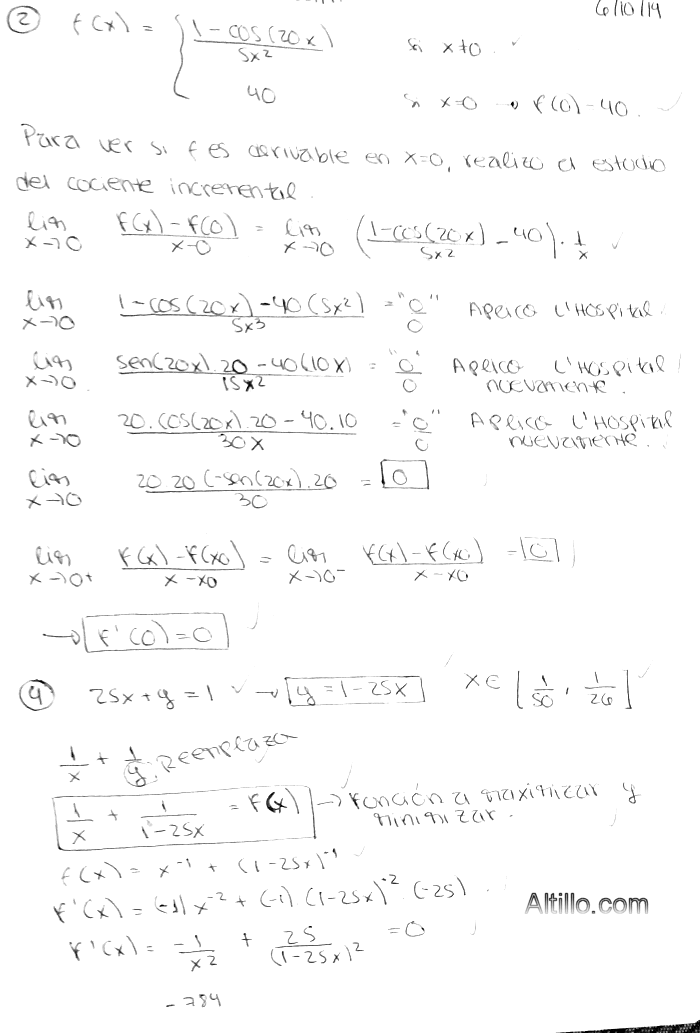 6/10/14
② f(x) = { 1-cos(20x) / 5x² si x≠0 ✓
40 si x=0 → f(0)-40. ✓
Para ver si f es derivable en x=0, realizo el estudio
del cociente incremental.
lim x→0 f(x)-f(0) / x-0 = lim x→0 (1-cos(20x) / 5x² - 40) · 1/x ✓
lim x→0 1-cos(20x)-40(5x²) / 5x³ = "0/0" Aplico L'Hospital.
lim x→0 sen(20x).20-40(10x) / 15x² = "0/0" Aplico L'Hospital
nuevamente.
lim x→0 20.cos(20x).20-40.10 / 30x = "0/0" Aplico L'Hospital
nuevamente.
lim x→0 20 20(-sen(20x).20 / 30 = 0
lim x→0+ f(x)-f(x0) / x-x0 = lim x→0- f(x)-f(x0) / x-x0 = 0
→ f'(0)=0 ✓
④ 25x+y=1 ✓ → y=1-25x ✓ x∈ [1/50, 1/26] ✓
1/x + 1/y. Reemplazo
1/x + 1/1-25x = f(x) → Función a maximizar y
minimizar.
f(x) = x⁻¹ + (1-25x)⁻¹ ✓
f'(x) = (-1)x⁻² + (-1)(1-25x)⁻² (-25).
f'(x) = -1/x² + 25/(1-25x)² = 0
Altillo.com
-784